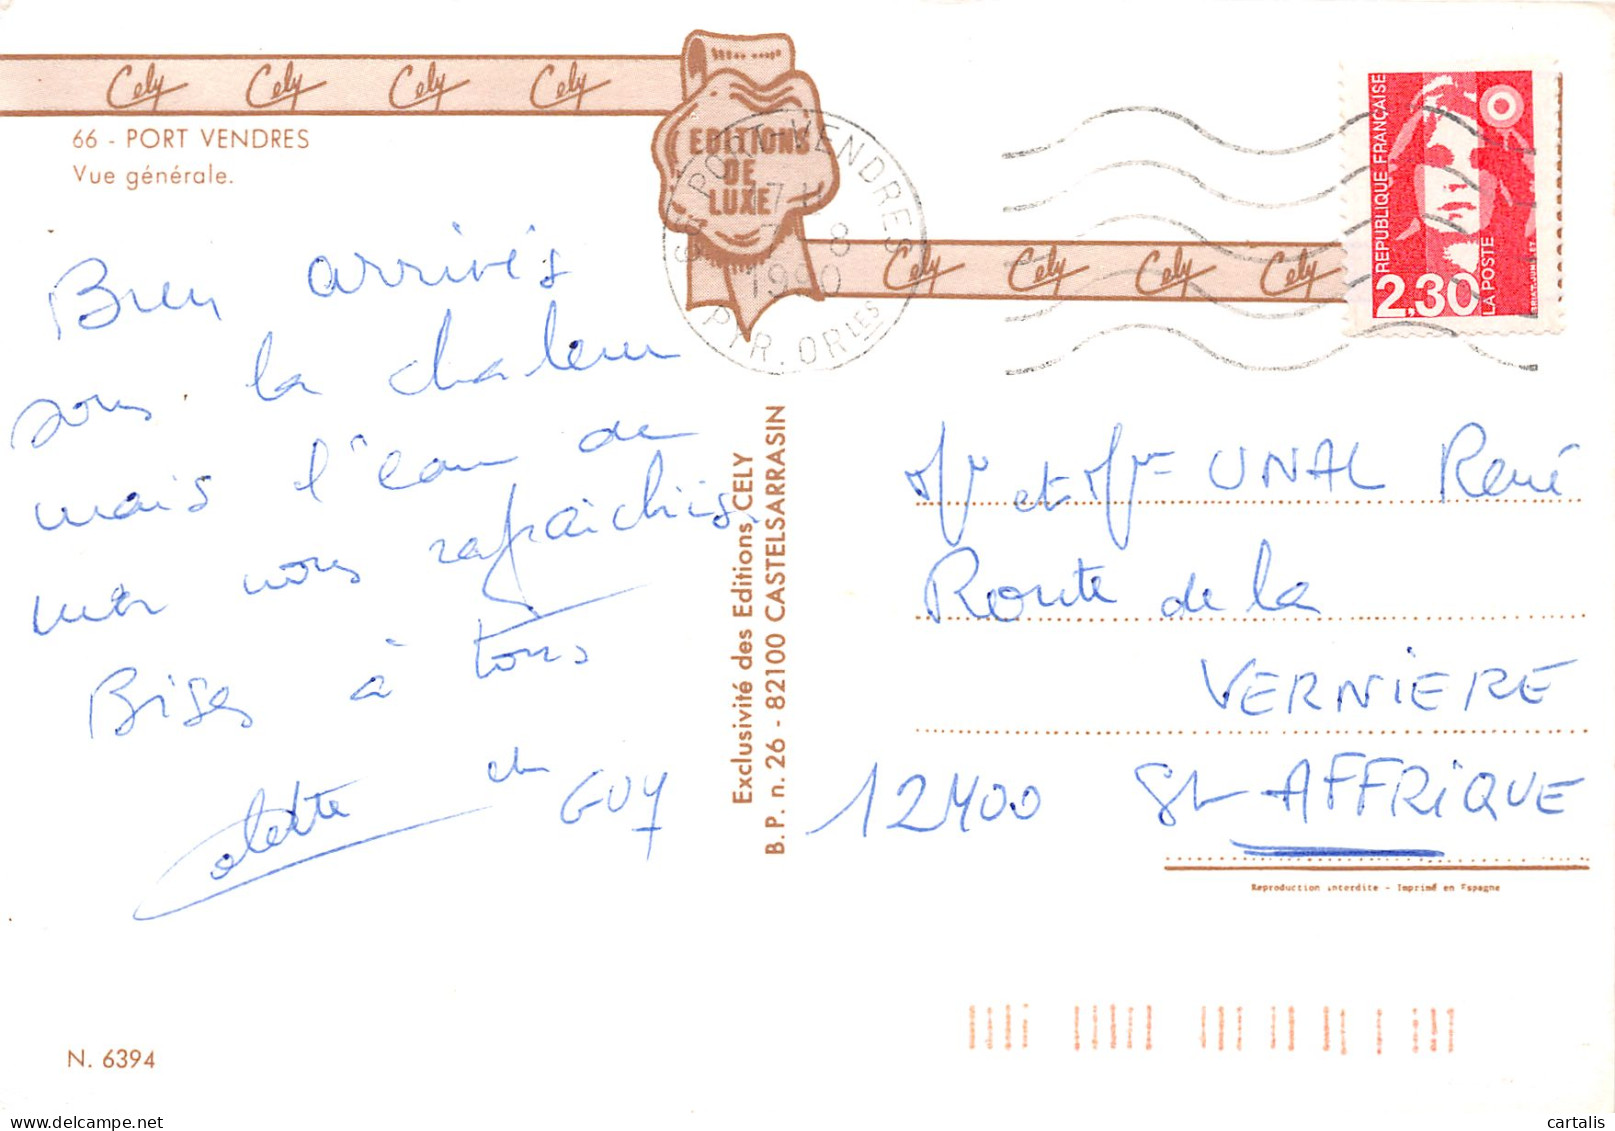 Cely Cely Cely Cely
66 - PORT VENDRES
Vue générale.
EDITIONS
DE
LUXE
Cely Cely Cely Cely
66 PORT-VENDRES
17 H
8
1990
PYR. ORLES
REPUBLIQUE FRANÇAISE
2,30
LA POSTE
Bien arrivés
sous la chaleur
mais l'eau de
mer nous rafraichis.
Bises à tous
Colette et GUY
Exclusivité des Editions CELY
B.P. n. 26 - 82100 CASTELSARRASIN
Mr et Mme UNAL René
Route de la
VERNIERE
12400 St AFFRIQUE
Reproduction interdite - Imprimé en Espagne
N. 6394
delcampe.net
cartalis